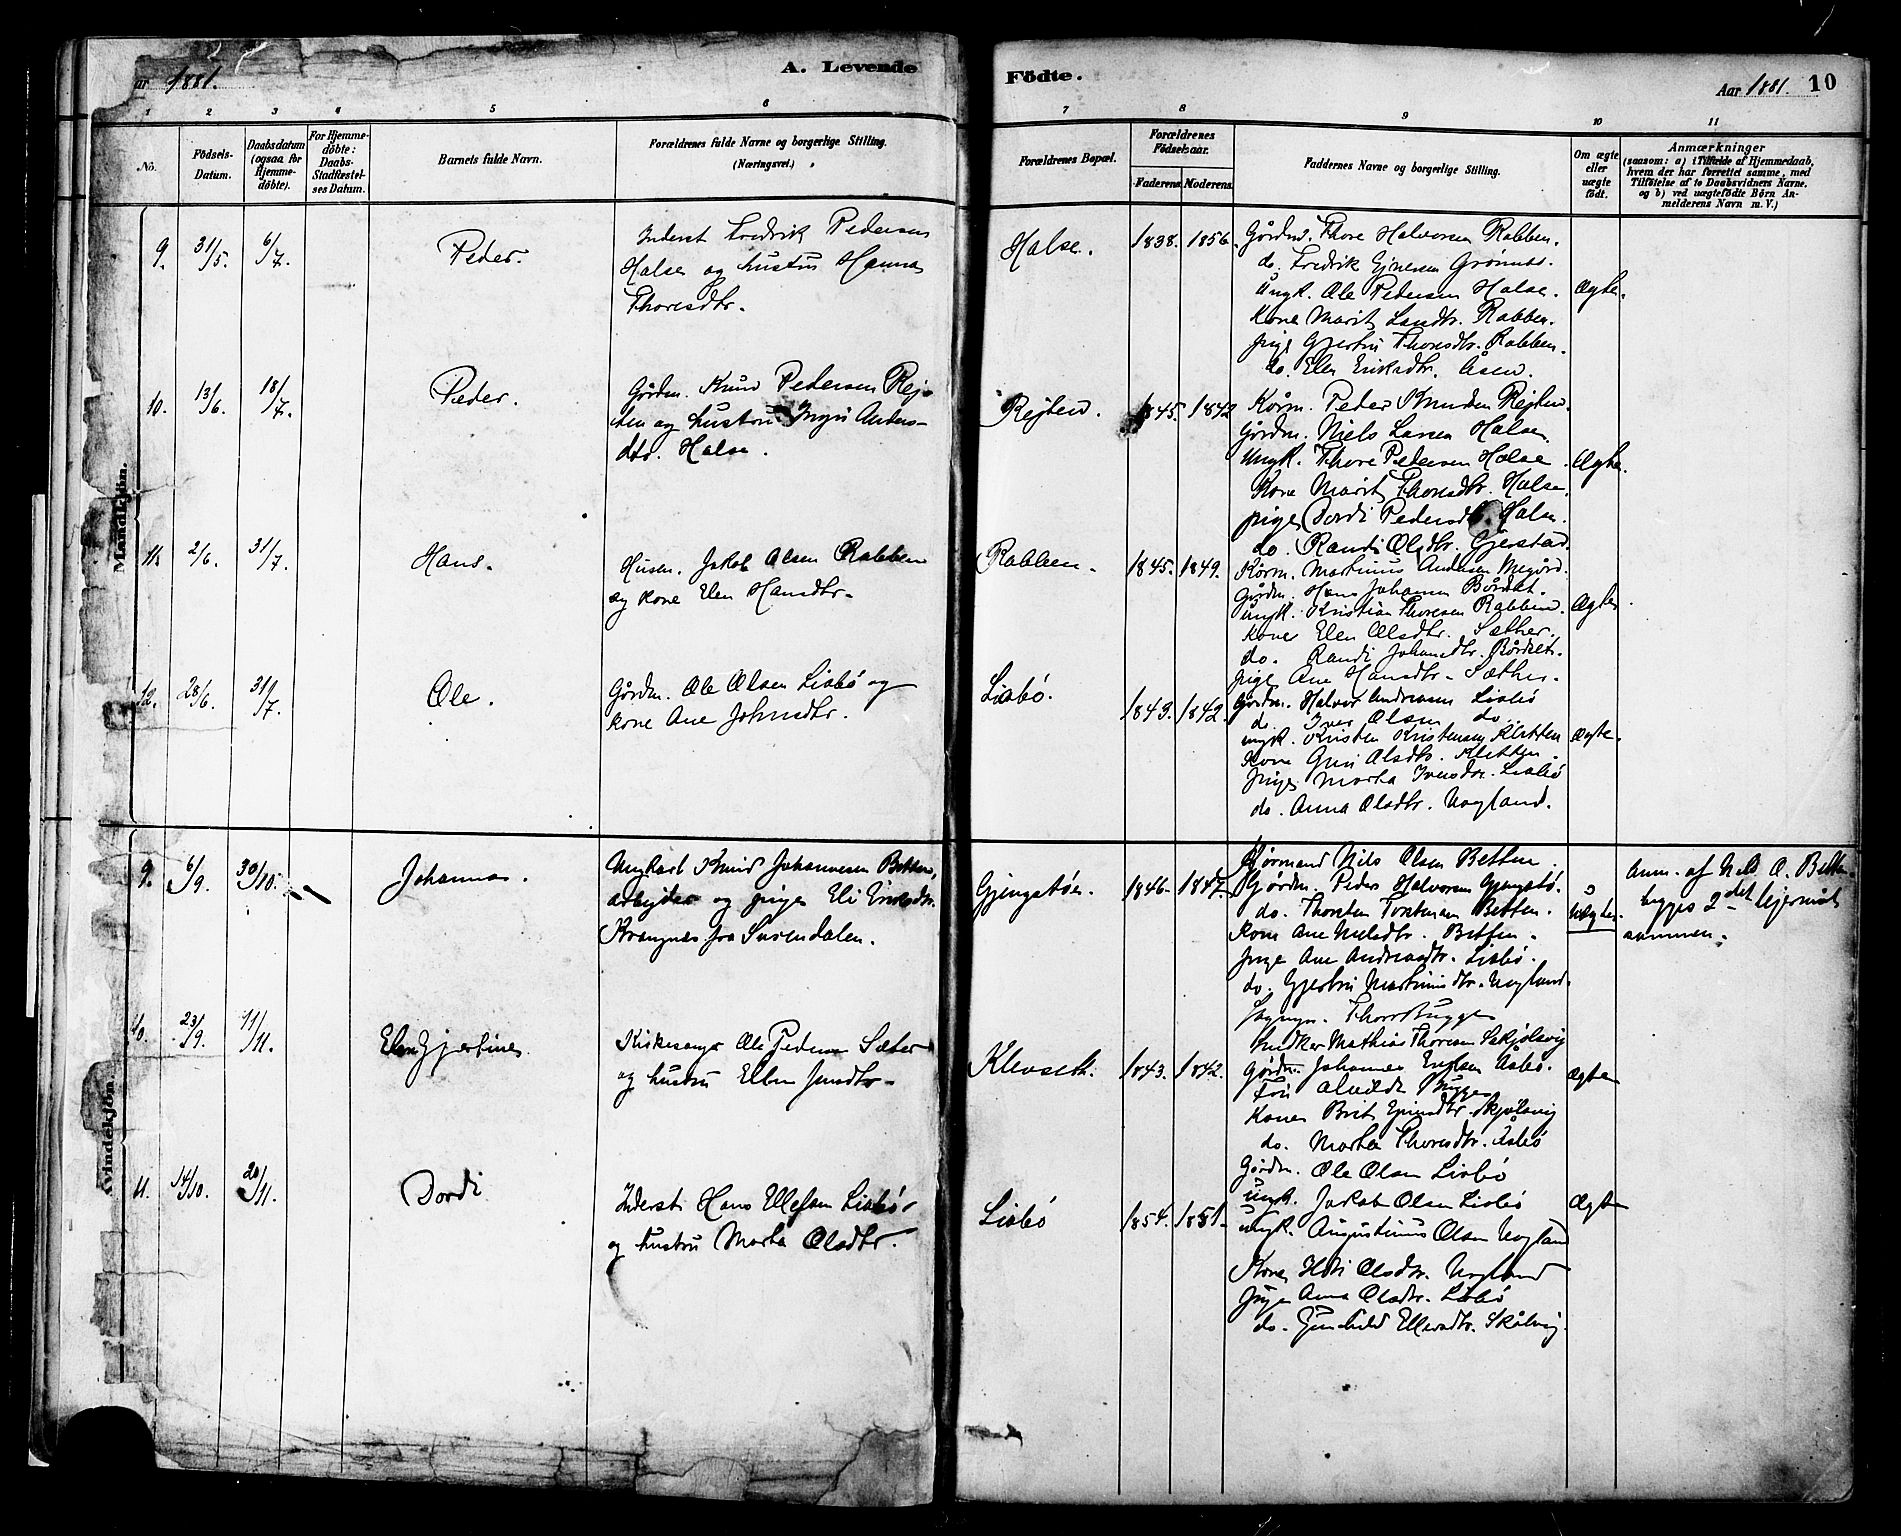 Aar 1881.
A. Levende
Födte.
Aar 1881. 10
1 2 3 4 5 6
7 8 9 10 11
No.
Födsels-Datum.
Daabsdatum (ogsaa for Hjemmedöbte).
For Hjemmedöbte: Daabs-Stadfæstelses Datum.
Barnets fulde Navn.
Forældrenes fulde Navne og borgerlige Stilling. (Næringsvei.)
Forældrenes Bopæl.
Forældrenes Födselsaar.
Faderens. Moderens.
Faddernes Navne og borgerlige Stilling.
Om ægte eller uægte födt.
Anmærkninger
(saasom: a) i Tilfælde af Hjemmedaab,
hvem der har forrettet samme, med
Tilföielse af to Daabsvidners Navne,
og b) ved uægtefödte Börn An-
melderens Navn m. V.)
Mandkjön.
9. 31/5. 6/7. Peder.
Inderst Fredrik Pedersen
Halse og hustru Hanna
Thoresdtr.
Halse. 1838. 1856.
Gårdm. Thore Halvorsen Rabben.
do. Fredrik Ejnersen
Ungk. Ole Pedersen Halse.
Kone Marit Larsdtr. Rabben.
pige Gjertru Thoresdtr. Rabben.
do. Elen Eriksdtr. Åsen.
Ægte.
10. 13/6. 18/7. Peder.
Gårdm. Knud Pedersen Rej-
ten og hustru Ingri Anders-
dtr. Halse.
Rejten. 1845. 1842
Kårm. Peder Knudsen Rejten.
Gårdm. Niels Larsen Halse.
Ungk. Thore Pedersen Halse.
Kone Marit Thoresdtr. Halse.
pige Dordi Pedersdtr. Halse.
do. Randi Olsdtr. Gjerstad.
Ægte.
11. 2/6. 31/7. Hans.
Husm. Jakob Olsen Rabben
og kone Elen Hansdtr.
Rabben. 1845. 1849.
Kårm. Martinus Andersen Megård.
Gårdm. Hans Johansen Bårdset.
Ungk. Kristian Thoresen Rabben.
Kone Elen Olsdtr. Sæther.
do. Randi Johansdtr. Bårdset.
pige Ane Hansdtr. Sæther.
Ægte.
12. 28/6. 31/7. Ole.
Gårdm. Ole Olsen Lisbö og
kone Ane Johnsdtr.
Lisbö. 1843. 1842.
Gårdm. Halvor Andreasen Lisbö
do. Iver Olsen do.
ungk. Kristen Kristensen Kletten
Kone Guri Olsdtr. Kletten.
Pige Marta Iversdtr. Lisbö
do. Anna Olsdtr. Nogland.
Ægte.
Kvindekjön.
9. 6/9. 30/10. Johanna.
Ungkarl Knud Johannesen Betten,
arbejder og pige Eli Eriksdtr.
Krangnæs fra Surendalen.
Gjengstöa. 1846. 1847.
Kårmand Nils Olsen Betten.
Gårdm. Peder Halvorsen Gjengstö.
do. Thorsten Torstensen Betten.
Kone Ane Nilsdtr. Betten.
Pige Ane Andreasdtr. Lisbö.
do. Gjertru Martinusdtr. Nogland.
Uægte.
Anm. af Nils O. Betten
begges 2det lejermål
sammen.
10. 23/9. 11/11. Elen Gjertine.
Kirkesanger Ole Pedersen Sæter
og hustru Ellen
Klevseth. 1843. 1842.
Thore Bugge
Snedker Mathias Thoresen Skjölsvig
Gårdm. Johannes Åsbö.
Alvilde Bugge
Kone Brit Skjölsvig
do. Marta Thoresdtr. Åsbö
Ægte
11. 14/10. 20/11. Dordi
Inderst Hans Ellefsen Lisbö
og hustru Marta Olsdtr.
Lisbö 1854. 1851.
Gårdm. Ole Olsen Lisbö
Ungk. Jakob Olsen Lisbö
Ungk. Augustinus Olsen Nogland
Kone Olsdtr. Nogland
Pige Anna Olsdtr. Lisbö
do. Gunhild Ellevsdtr. Skålvig.
Ægte